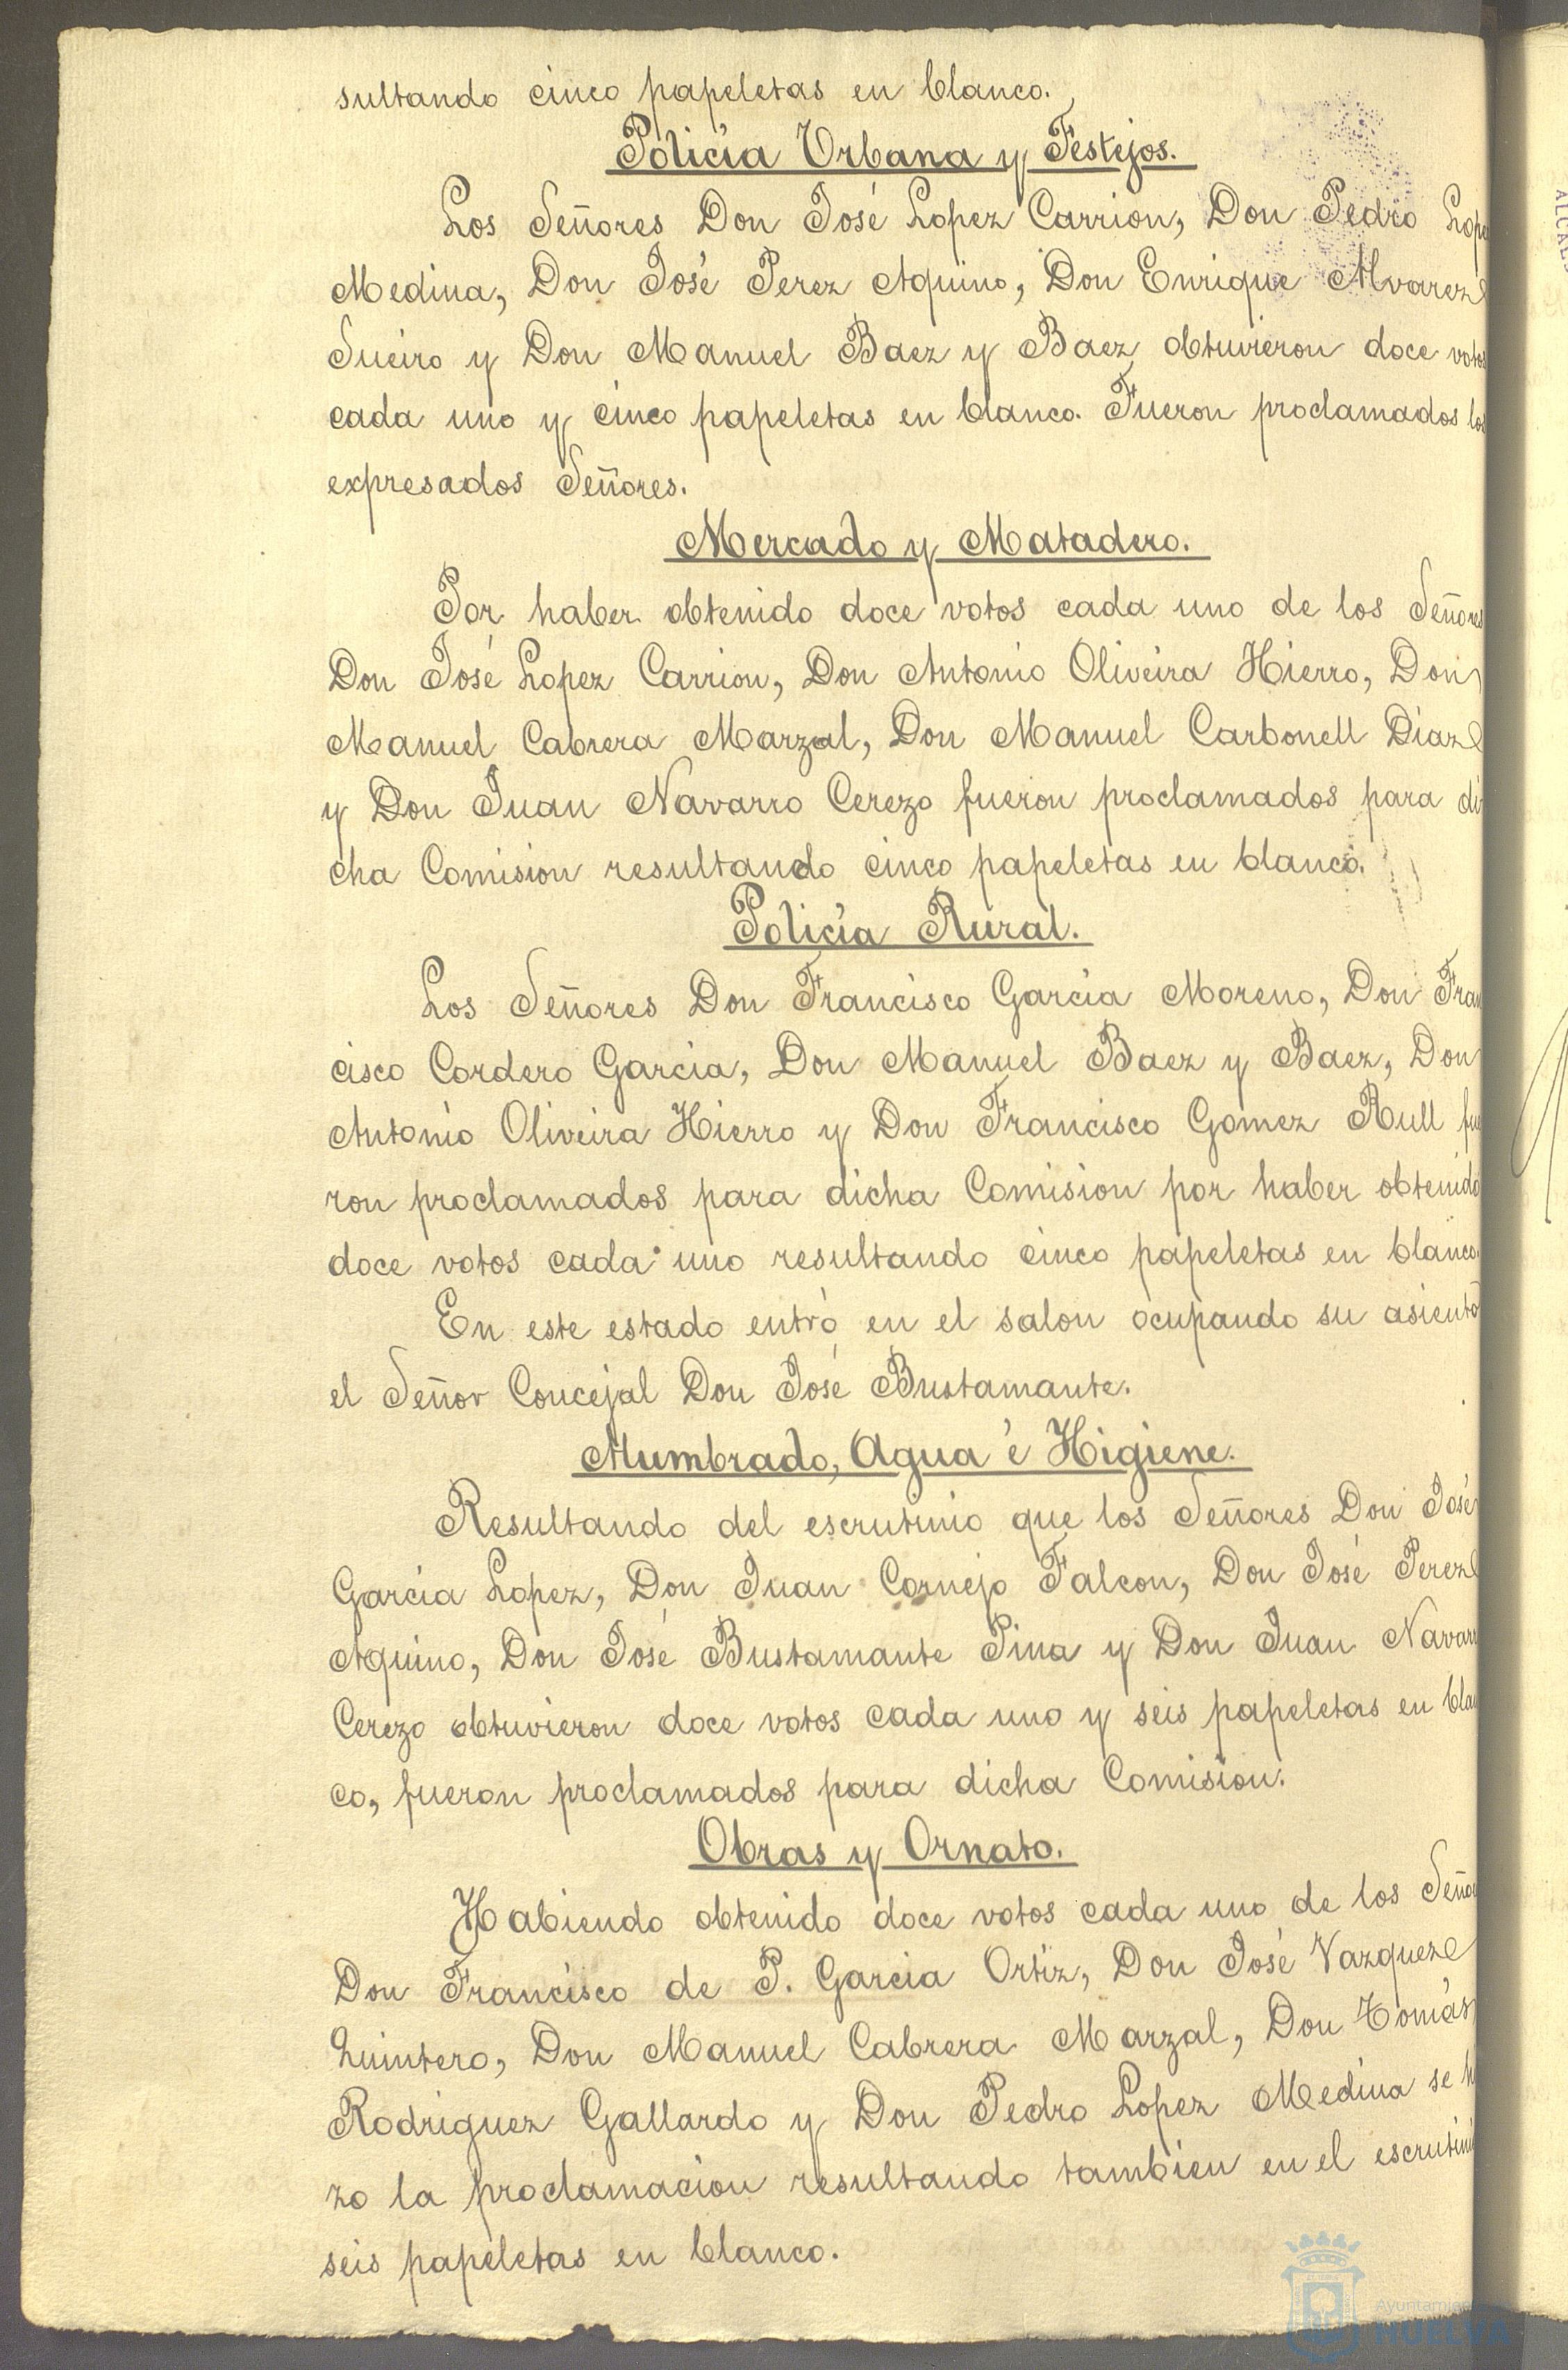 sultando cinco papeletas en blanco.
Policía Urbana y Festejos.
Los Señores Don José Lopez Carrion, Don Pedro Lope
Medina, Don José Perez Aquino, Don Enrique Alvarez
Sueiro y Don Manuel Baez y Baez obtuvieron doce votos
cada uno y cinco papeletas en blanco. Fueron proclamados los
expresados Señores.
Mercado y Matadero.
Por haber obtenido doce votos cada uno de los Señores
Don José Lopez Carrion, Don Antonio Oliveira Hierro, Don
Manuel Cabrera Marzal, Don Manuel Carbonell Diaz
y Don Juan Navarro Cerezo fueron proclamados para di
cha Comision resultando cinco papeletas en blanco.
Policía Rural.
Los Señores Don Francisco García Moreno, Don Fran
cisco Cordero García, Don Manuel Baez y Baez, Don
Antonio Oliveira Hierro y Don Francisco Gomez Rull fue
ron proclamados para dicha Comision por haber obtenido
doce votos cada uno resultando cinco papeletas en blanco.
En este estado entró en el salon ocupando su asiento
el Señor Concejal Don José Bustamante.
Alumbrado, Agua é Higiene.
Resultando del escrutinio que los Señores Don José
García Lopez, Don Juan Cornejo Falcon, Don José Perez
Aquino, Don José Bustamante Pina y Don Juan Navarr
Cerezo obtuvieron doce votos cada uno y seis papeletas en blan
co, fueron proclamados para dicha Comision.
Obras y Ornato.
Habiendo obtenido doce votos cada uno de los Seño
Don Francisco de P. Garcia Ortiz, Don José Vazquez
Quintero, Don Manuel Cabrera Marzal, Don Tomás
Rodriguez Gallardo y Don Pedro Lopez Medina se hi
zo la proclamacion resultando tambien en el escrutinio
seis papeletas en blanco.
Ayuntamie
HUELVA